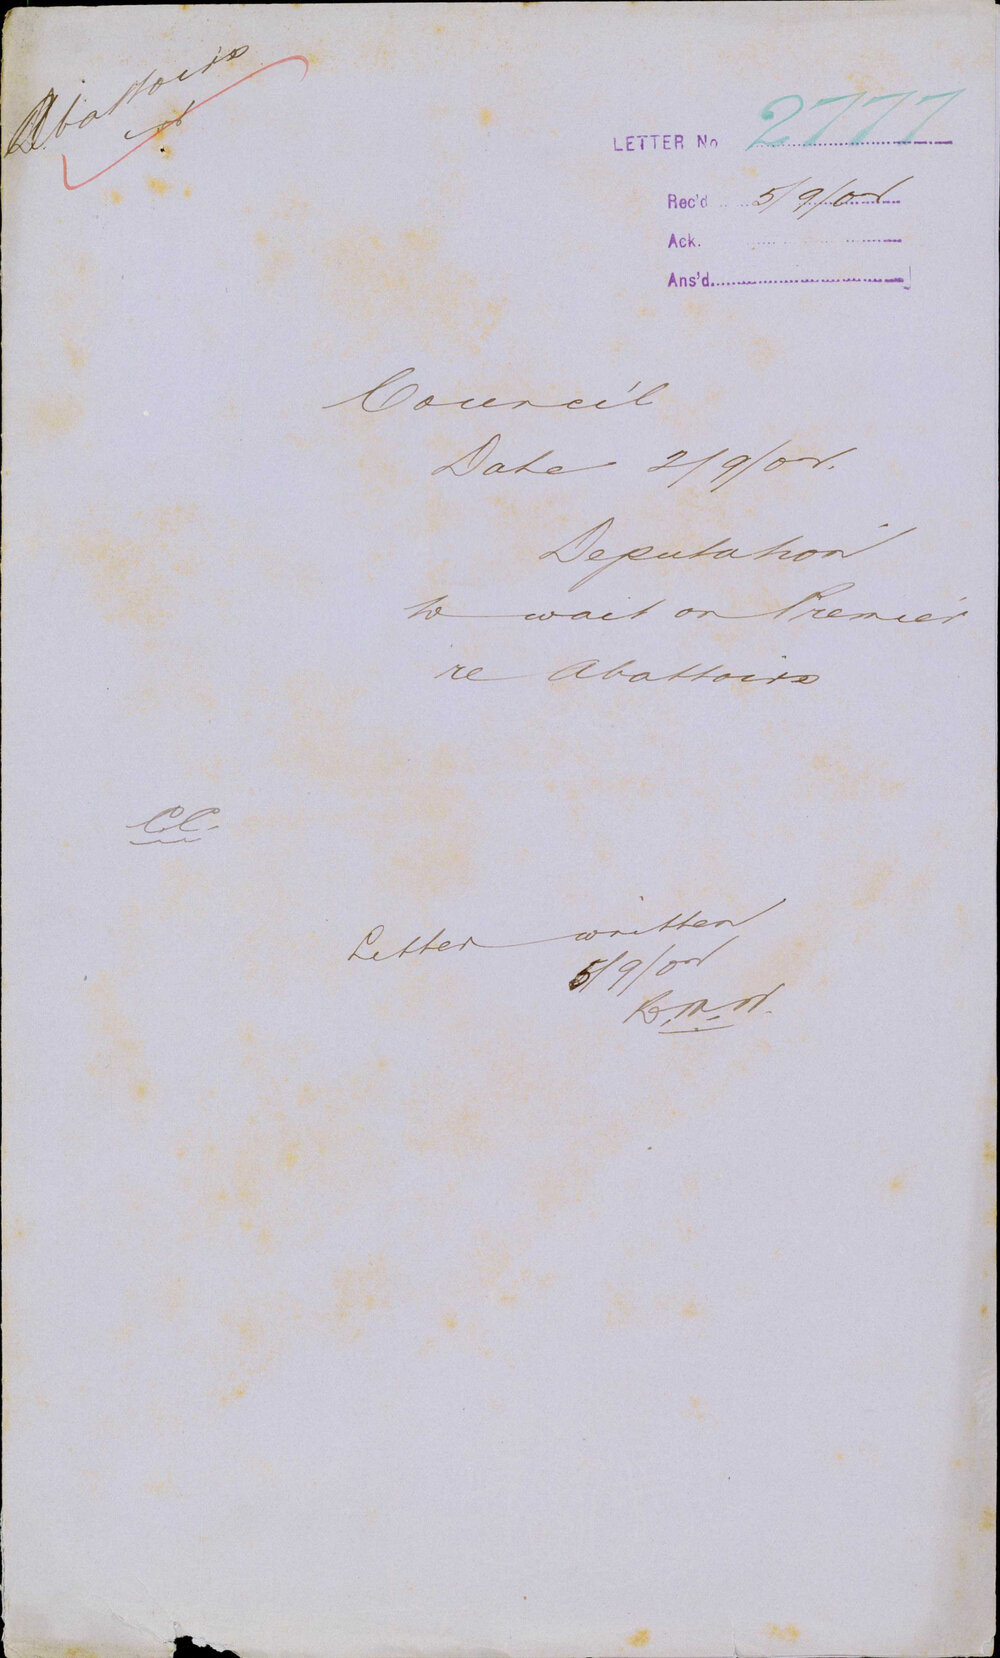 Abattoirs
LETTER No 2777
Rec'd 5/9/02
Ack.
Ans'd
Council
Date 2/9/02.
Deputation
to wait on Premier
re Abattoirs
CC.
Letter written
5/9/02